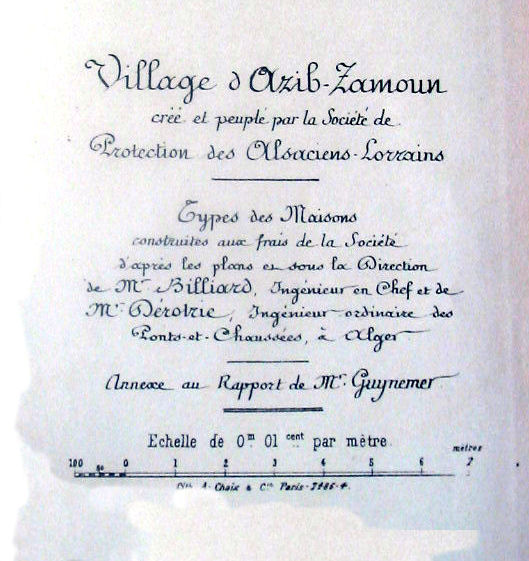 Village d'Azib-Zamoun
créé et peuplé par la Société de
Protection des Alsaciens-Lorrains
Types des Maisons
construites aux frais de la Société
d'après les plans et sous la Direction
de Mr. Billiard, Ingénieur en Chef et de
Mr. Dérotrie, Ingénieur ordinaire des
Ponts-et-Chaussées, à Alger.
Annexe au Rapport de Mr. Guynemer.
Echelle de 0m 01 cent par mètre.
mètres
100 50 0 1 2 3 4 5 6 7
A. Chaix & Cie Paris-7286-4.